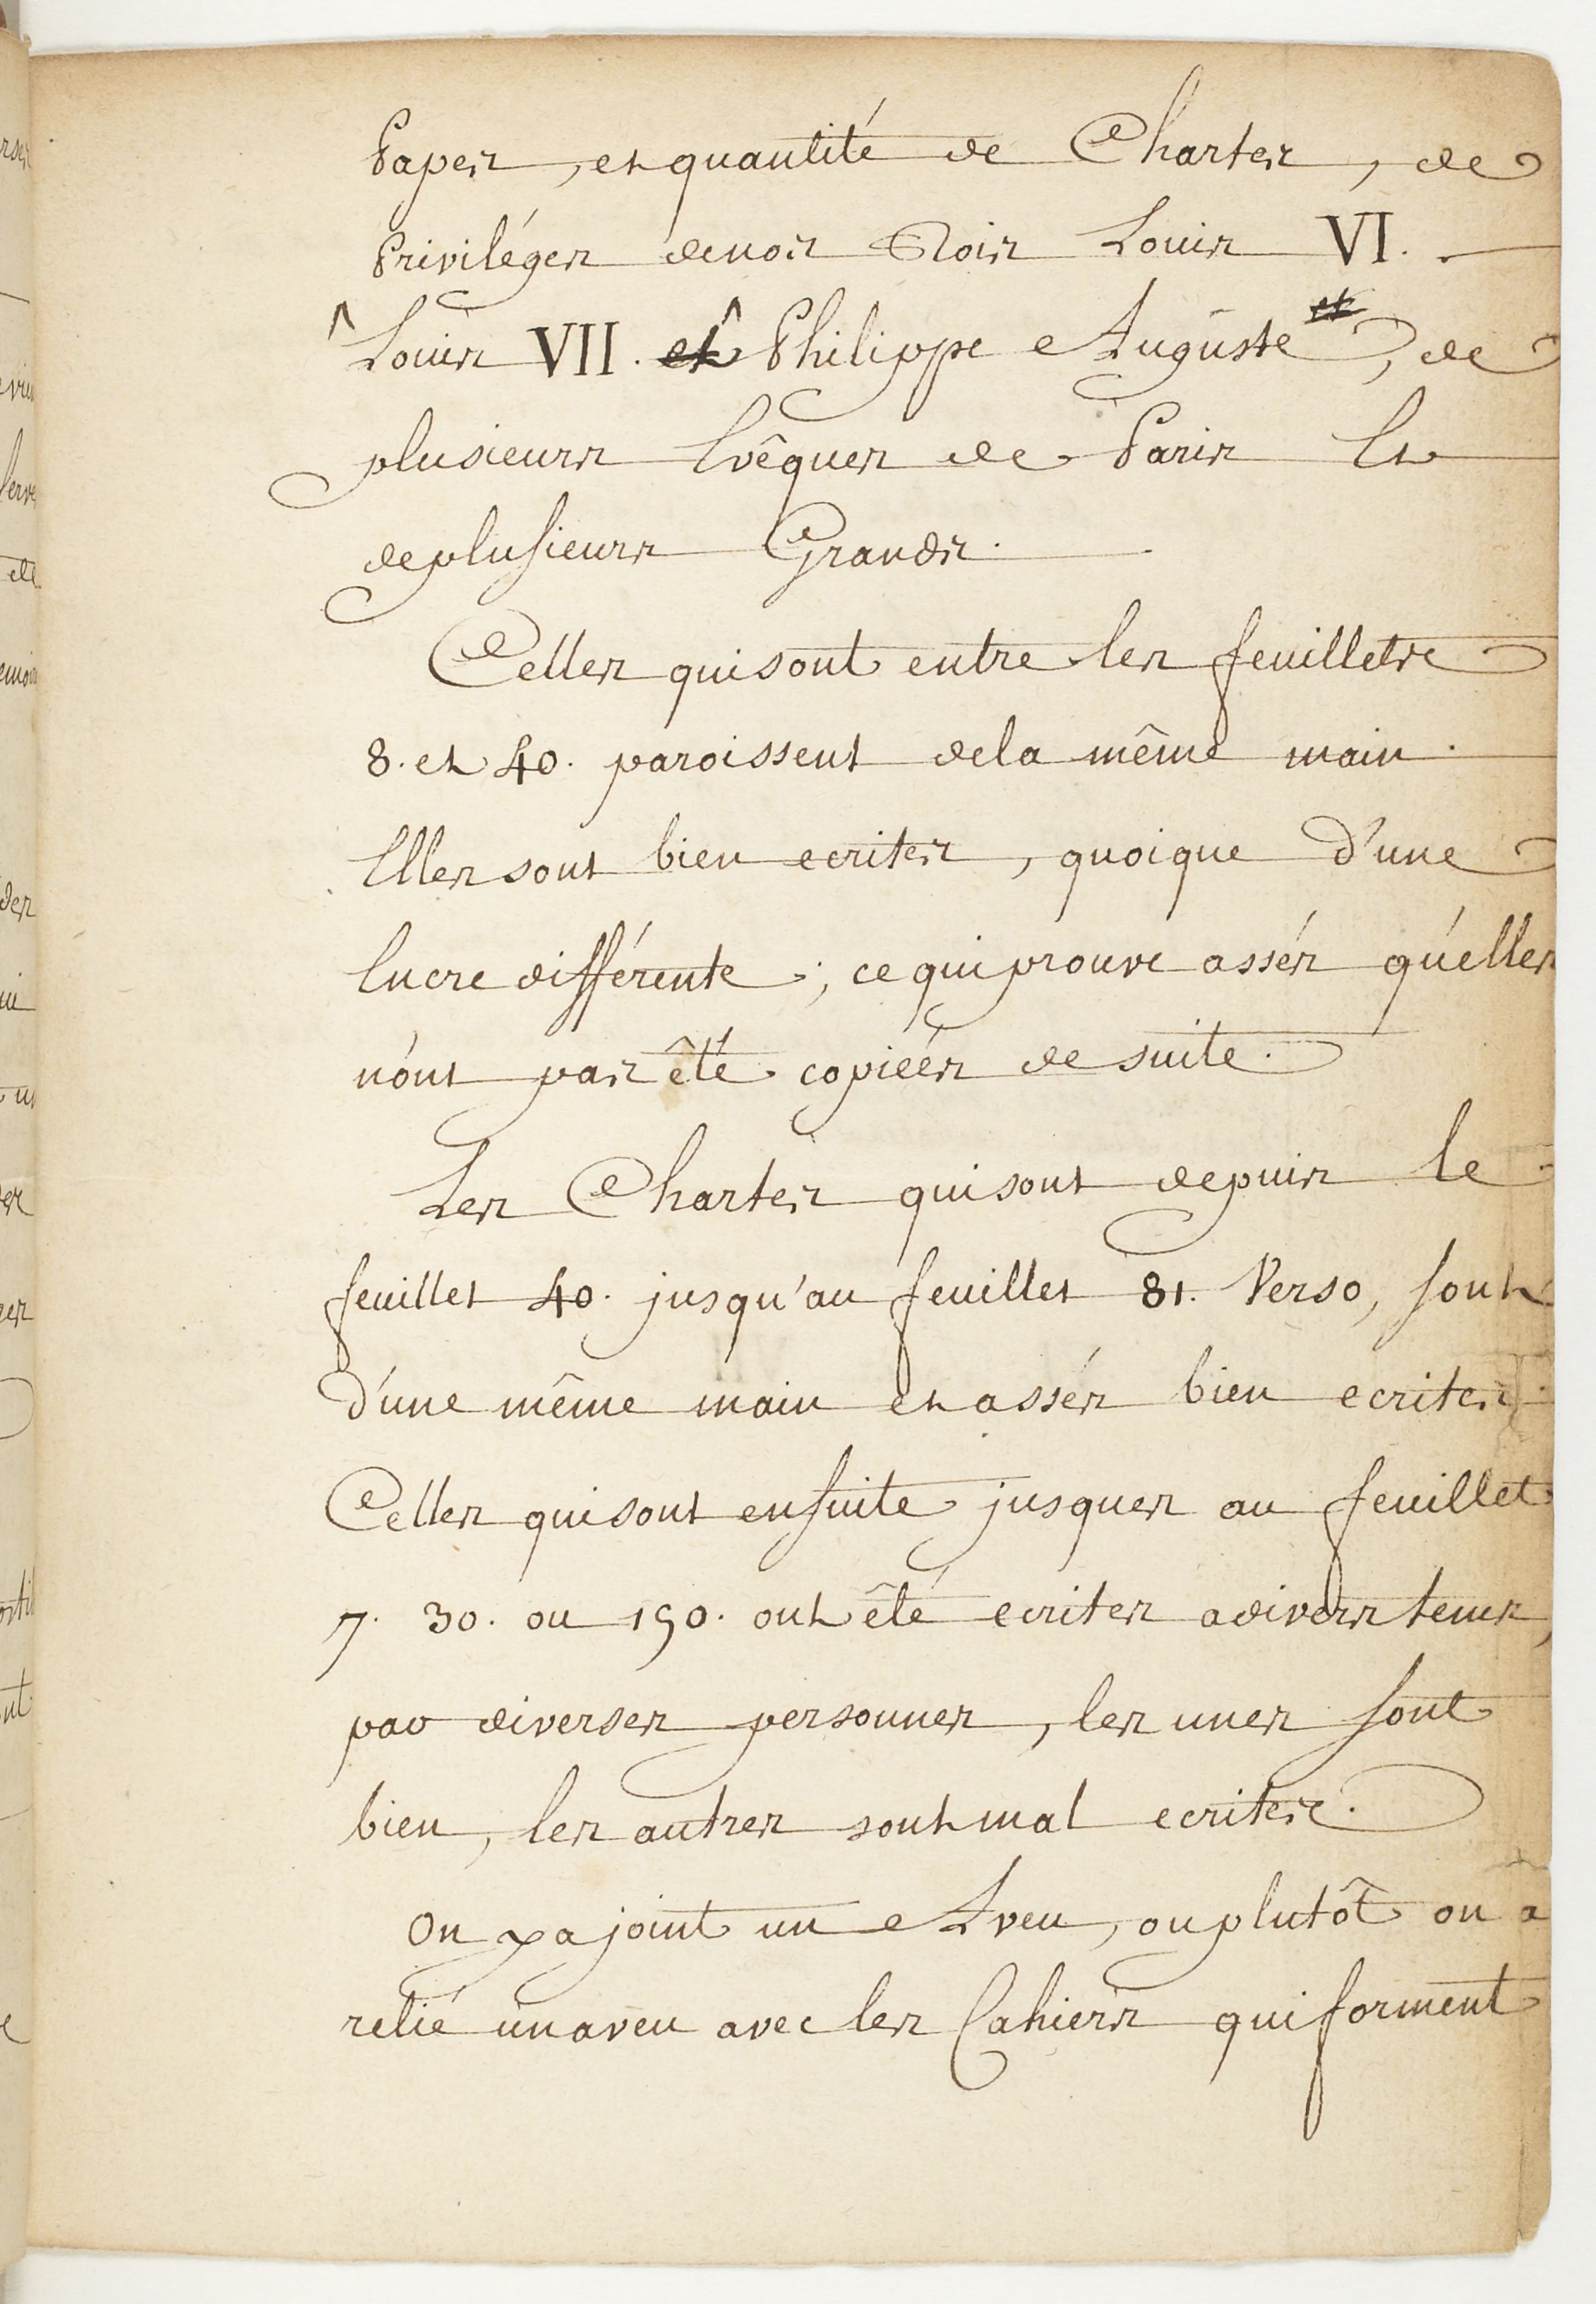 Papes, et quantité de Chartes, de
Priviléges de nos Rois Louis VI.
Louis VII. et Philippe Auguste et, de
plusieurs Evêques de Paris Et
de plusieurs Grands.
Celles qui sont entre les feuillets
8. et 40. paroissent de la même main.
Elles sont bien ecrites, quoique d'une
Encre différente; ce qui prouve assés qu'elles
n'ont pas êté copiéés de suite.
Les Chartes qui sont depuis le
feuillet 40. jusqu'au feuillet 81. Verso, sont
d'une même main et assés bien ecrites.
Celles qui sont ensuite jusques au feuillet
7. 30. ou 190. ont êté ecrites a divers tems,
par diverses personnes, les unes sont
bien, les autres sont mal ecrites.
On y a joint un Aveu, ou plutôt on a
relié un aveu avec les Cahiers qui forment